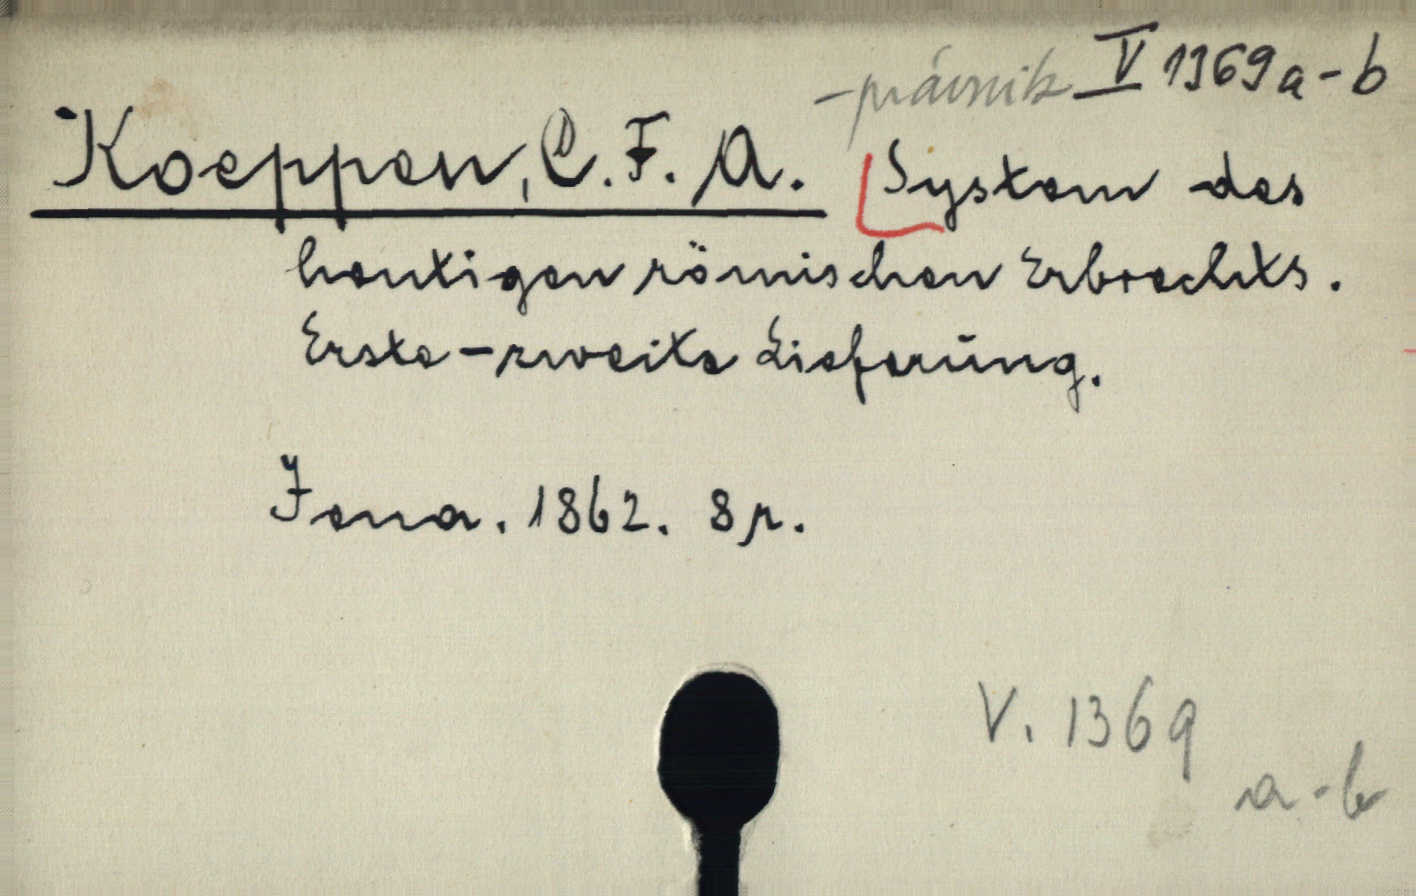 -právnik V 1369 a-b
Koeppen, C. F. A. System des
heutigen römischen Erbrechts.
Erste-zweite Lieferūng.
Jena. 1862. 8 r.
V. 1369
a-b